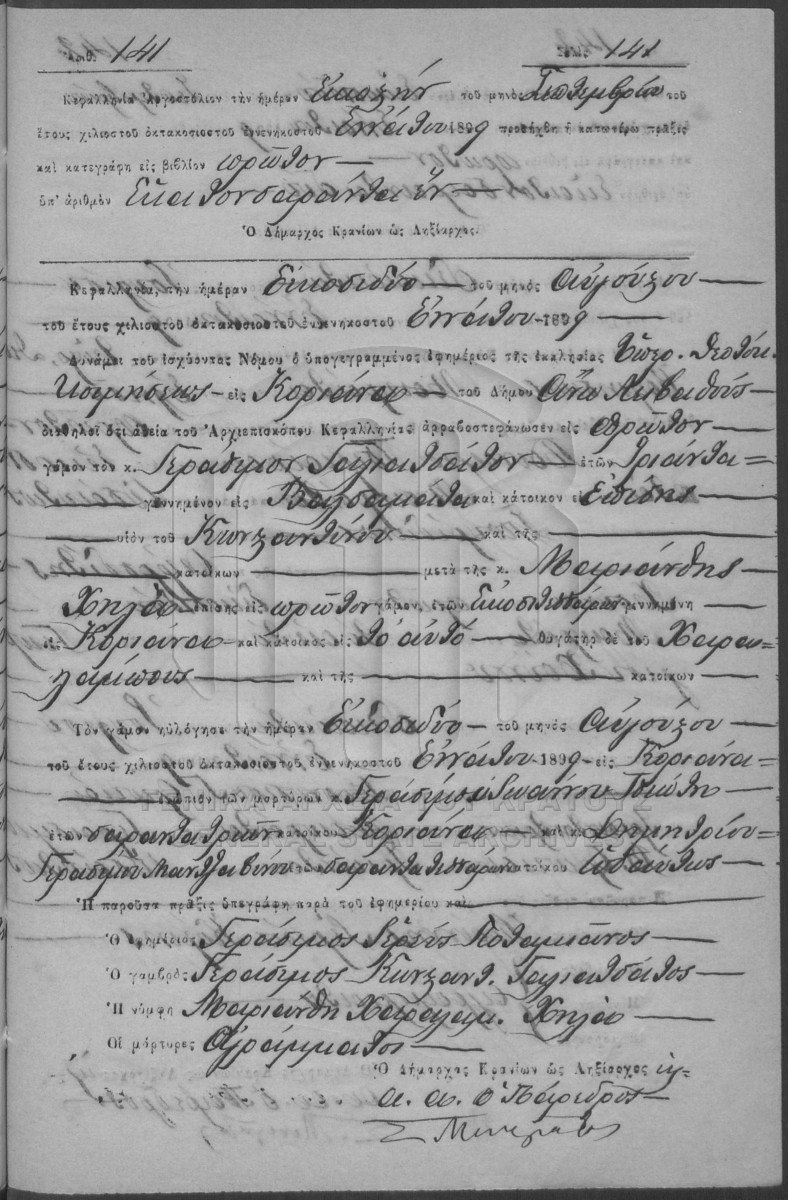 Ἀριθ. 141 141
Κεφαλληνία Ἀργοστόλιον τὴν ἡμέραν Εἰκοστὴν τοῦ μηνὸς Σεπτεμβρίου τοῦ
ἔτους χιλιοστοῦ ὀκτακοσιοστοῦ ἐννενηκοστοῦ Ἐννάτου 1899 προσήχθη ἡ κατωτέρω πρᾶξις
καὶ κατεγράφη εἰς βιβλίον πρῶτον
ὑπ' ἀριθμὸν Ἑκατὸν σαράντα ἓν
Ὁ Δήμαρχος Κρανίων ὡς Ληξίαρχος.
Κεφαλληνία, τὴν ἡμέραν Εἰκοσιδύο τοῦ μηνὸς Αὐγούστου
τοῦ ἔτους χιλιοστοῦ ὀκτακοσιοστοῦ ἐννενηκοστοῦ Ἐννάτου 1899
Δυνάμει τοῦ ἰσχύοντος Νόμου ὁ ὑπογεγραμμένος ἐφημέριος τῆς ἐκκλησίας Ὑπερ. Θεοτόκ.
Κοιμήσεως εἰς Κοριάνα τοῦ Δήμου Ἄνω Λιβαθοῦς
διαδηλοῖ ὅτι ἀδείᾳ τοῦ Ἀρχιεπισκόπου Κεφαλληνίας ἀρραβωστεφάνωσεν εἰς πρῶτον
γάμον τὸν κ. Γεράσιμον Γαλιατσάτον ἐτῶν Τριάντα
γεννημένον εἰς Βαλσαμάτα καὶ κάτοικον ἐπίσης
υἱὸν τοῦ Κωνσταντίνου καὶ τῆς
κατοίκων μετὰ τῆς κ. Μαριάνθης
Χηλᾶ ἐπίσης εἰς πρῶτον γάμον, ἐτῶν Εἰκοσιτεσσάρων γεννημένη
εἰς Κοριάνα καὶ κάτοικος εἰς τὸ αὐτὸ θυγάτηρ δὲ τοῦ Χαρα-
λάμπους καὶ τῆς κατοίκων
Τὸν γάμον ηὐλόγησε τὴν ἡμέραν Εἰκοσιδύο τοῦ μηνὸς Αὐγούστου
τοῦ ἔτους χιλιοστοῦ ὀκτακοσιοστοῦ ἐννενηκοστοῦ Ἐννάτου 1899 εἰς Κοριάνα
ἐνώπιον τῶν μαρτύρων κ. Γερασίμου Ἰωάννου
ἐτῶν σαράντα τριῶν κατοίκου Κοριάνα καὶ κ. Δημητρίου
Γερασίμου Μαντζαβίνου ἐτῶν σαράντα τεσσάρων κατοίκου ὡσαύτως
Ἡ παροῦσα πρᾶξις ὑπεγράφη παρὰ τοῦ ἐφημερίου καὶ
Ὁ ἐφημέριος Γεράσιμος Ἱερεὺς Ποταμιᾶνος
Ὁ γαμβρὸς Γεράσιμος Κωνσταντ. Γαλιατσάτος
Ἡ νύμφη Μαριάνθη Χαραλάμ. Χηλᾶ
Οἱ μάρτυρες Ἀγράμματοι
Ὁ Δήμαρχος Κρανίων ὡς Ληξίαρχος
α. α. ὁ Πάρεδρος
ΓΕΝΙΚΑ ΑΡΧΕΙΑ ΤΟΥ ΚΡΑΤΟΥΣ
GENERAL STATE ARCHIVES